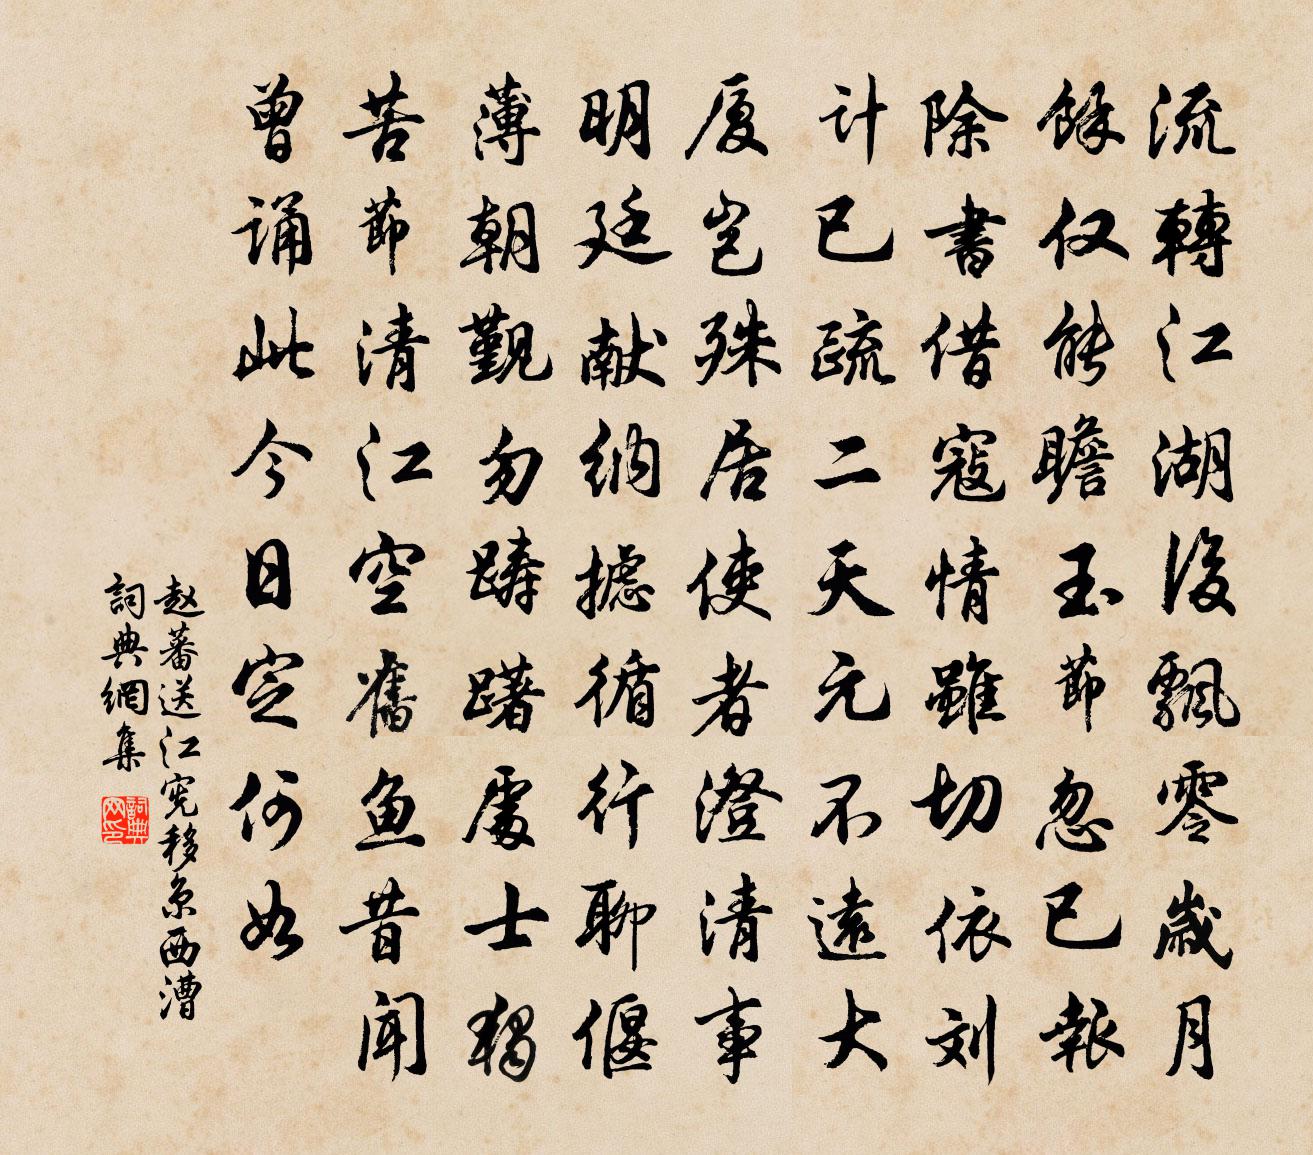 流轉江湖後飄零歲月
餘仅能瞻玉節忽已報
除書借寇情雖切依刘
计已疏二天元不遠大
厦岂殊居使者澄清事
明廷献纳摅循行聊偃
薄朝觐勿踌躇處士獨
苦節清江空舊鱼昔闻
曾诵此今日定何如
赵蕃送江宪移京西漕
詞典網集
詞典网印